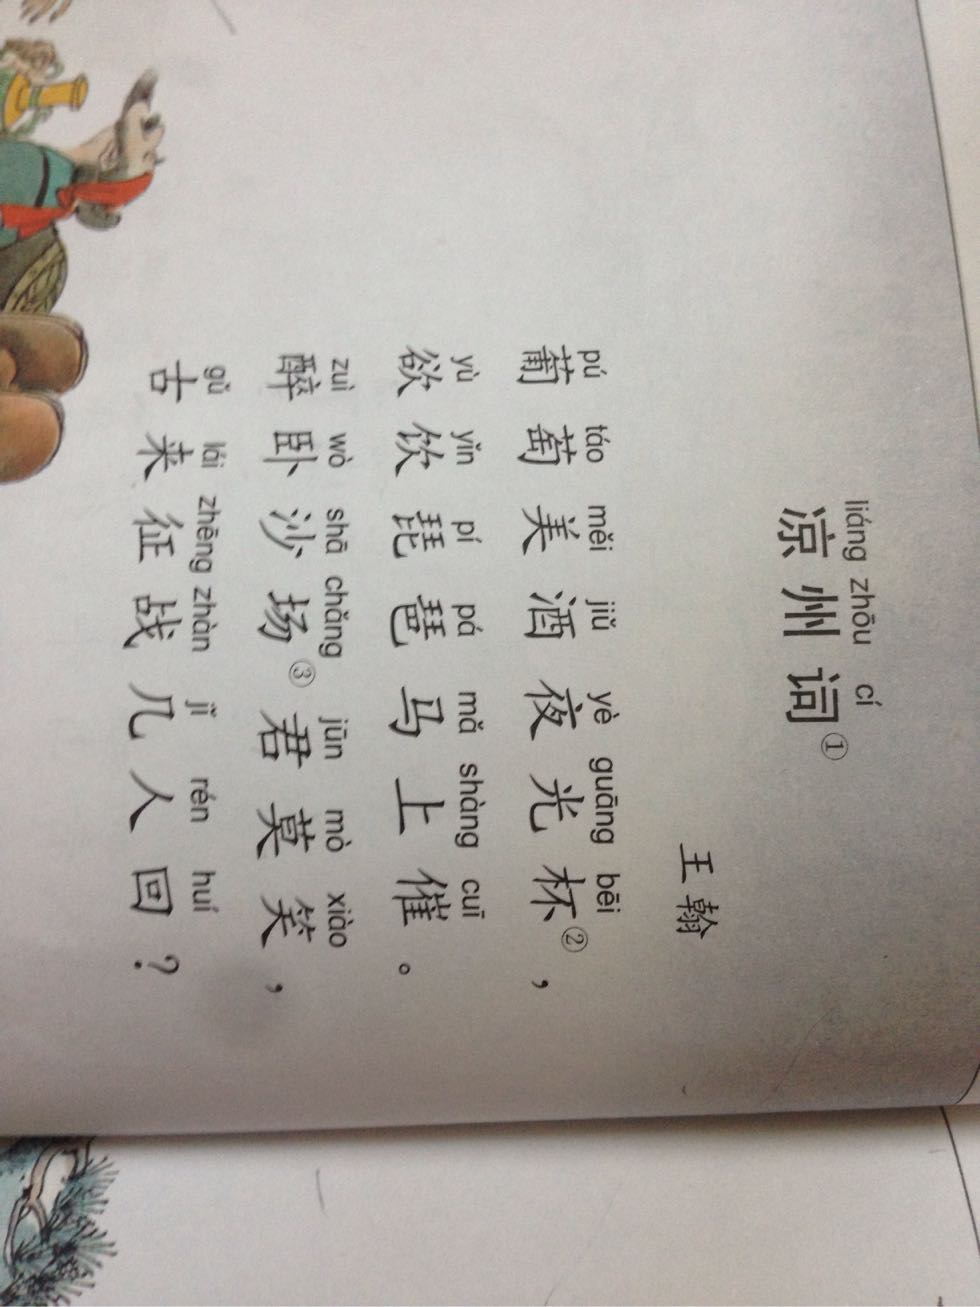 liáng zhōu cí
凉州词①
王翰
pú táo měi jiǔ yè guāng bēi
葡萄美酒夜光杯②，
yù yǐn pí pá mǎ shàng cuī
欲饮琵琶马上催。
zuì wò shā chǎng jūn mò xiào
醉卧沙场③君莫笑，
gǔ lái zhēng zhàn jǐ rén huí
古来征战几人回？